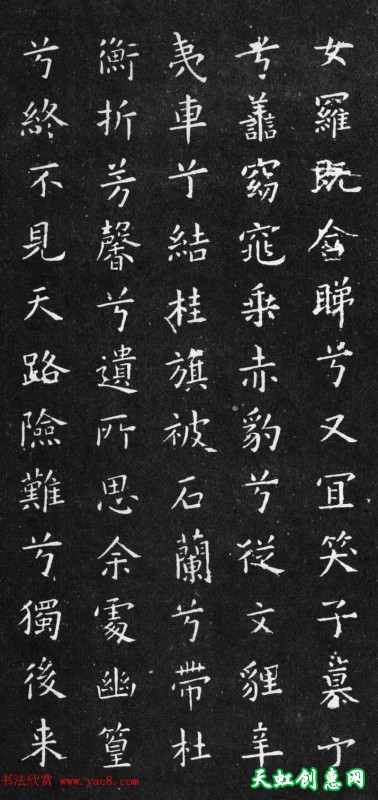 女羅既含睇兮又冝笑子慕予
兮譱窈窕乘赤豹兮從文貍辛
夷車兮結桂旗被石蘭兮帶杜
衡折芳馨兮遺所思余處幽篁
兮終不見天路險難兮獨後来
书法欣赏 www.yac8.com
天虹创惠网